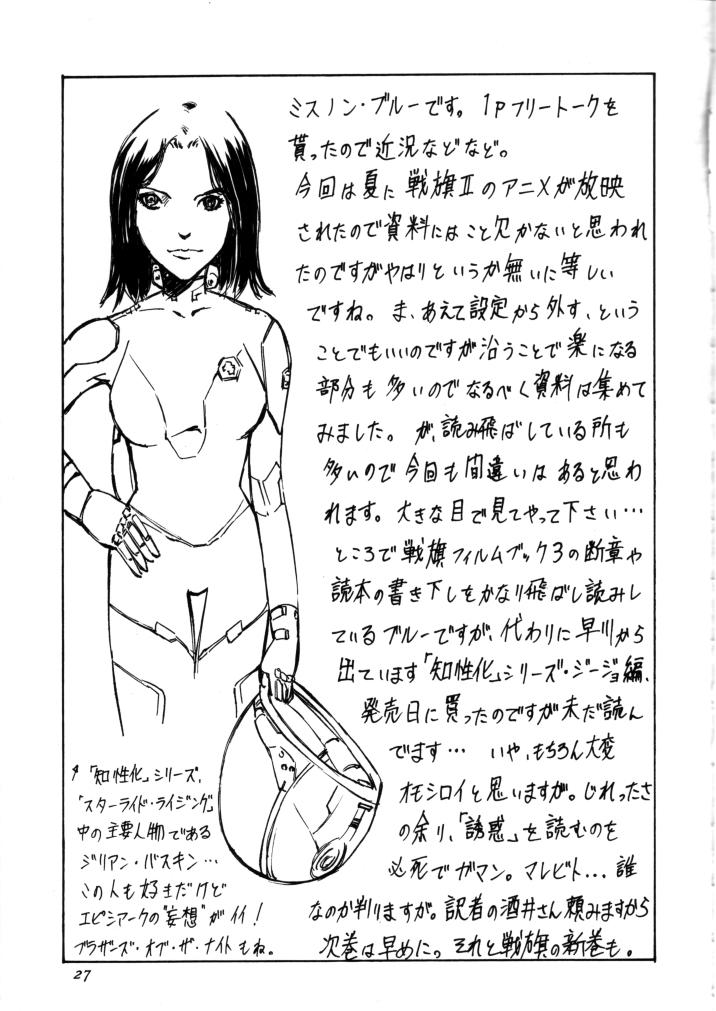 ミスノン・ブルーです。 1pフリートークを
貰ったので近況などなど。
今回は夏に戦旗Ⅱのアニメが放映
されたので資料にはこと欠かないと思われ
たのですがやはりというか無いに等しい
ですね。ま、あえて設定から外す、という
ことでもいいのですが沿うことで楽になる
部分も多いのでなるべく資料は集めて
みました。が、読み飛ばしている所も
多いので今回も間違いはあると思わ
れます。大きな目で見てやって下さい…
ところで戦旗フィルムブック3の断章や
読本の書き下しをかなり飛ばし読みし
ているブルーですが、代わりに早川から
出ています「知性化」シリーズ・ジージョ編、
発売日に買ったのですが未だ読ん
でます… いや、もちろん大変
オモシロイと思いますが。じれったさ
の余り、「誘惑」を読むのを
必死でガマン。マレビト…誰
なのか判りますが。訳者の酒井さん頼みますから
次巻は早めに。それと戦旗の新巻も。
「知性化」シリーズ、
「スターライド・ライジング」
中の主要人物である
ジリアン・バスキン…
この人も好きだけど
エピシアークの"妄想"がイイ!
ブラザーズ・オブ・ザ・ナイトもね。
27